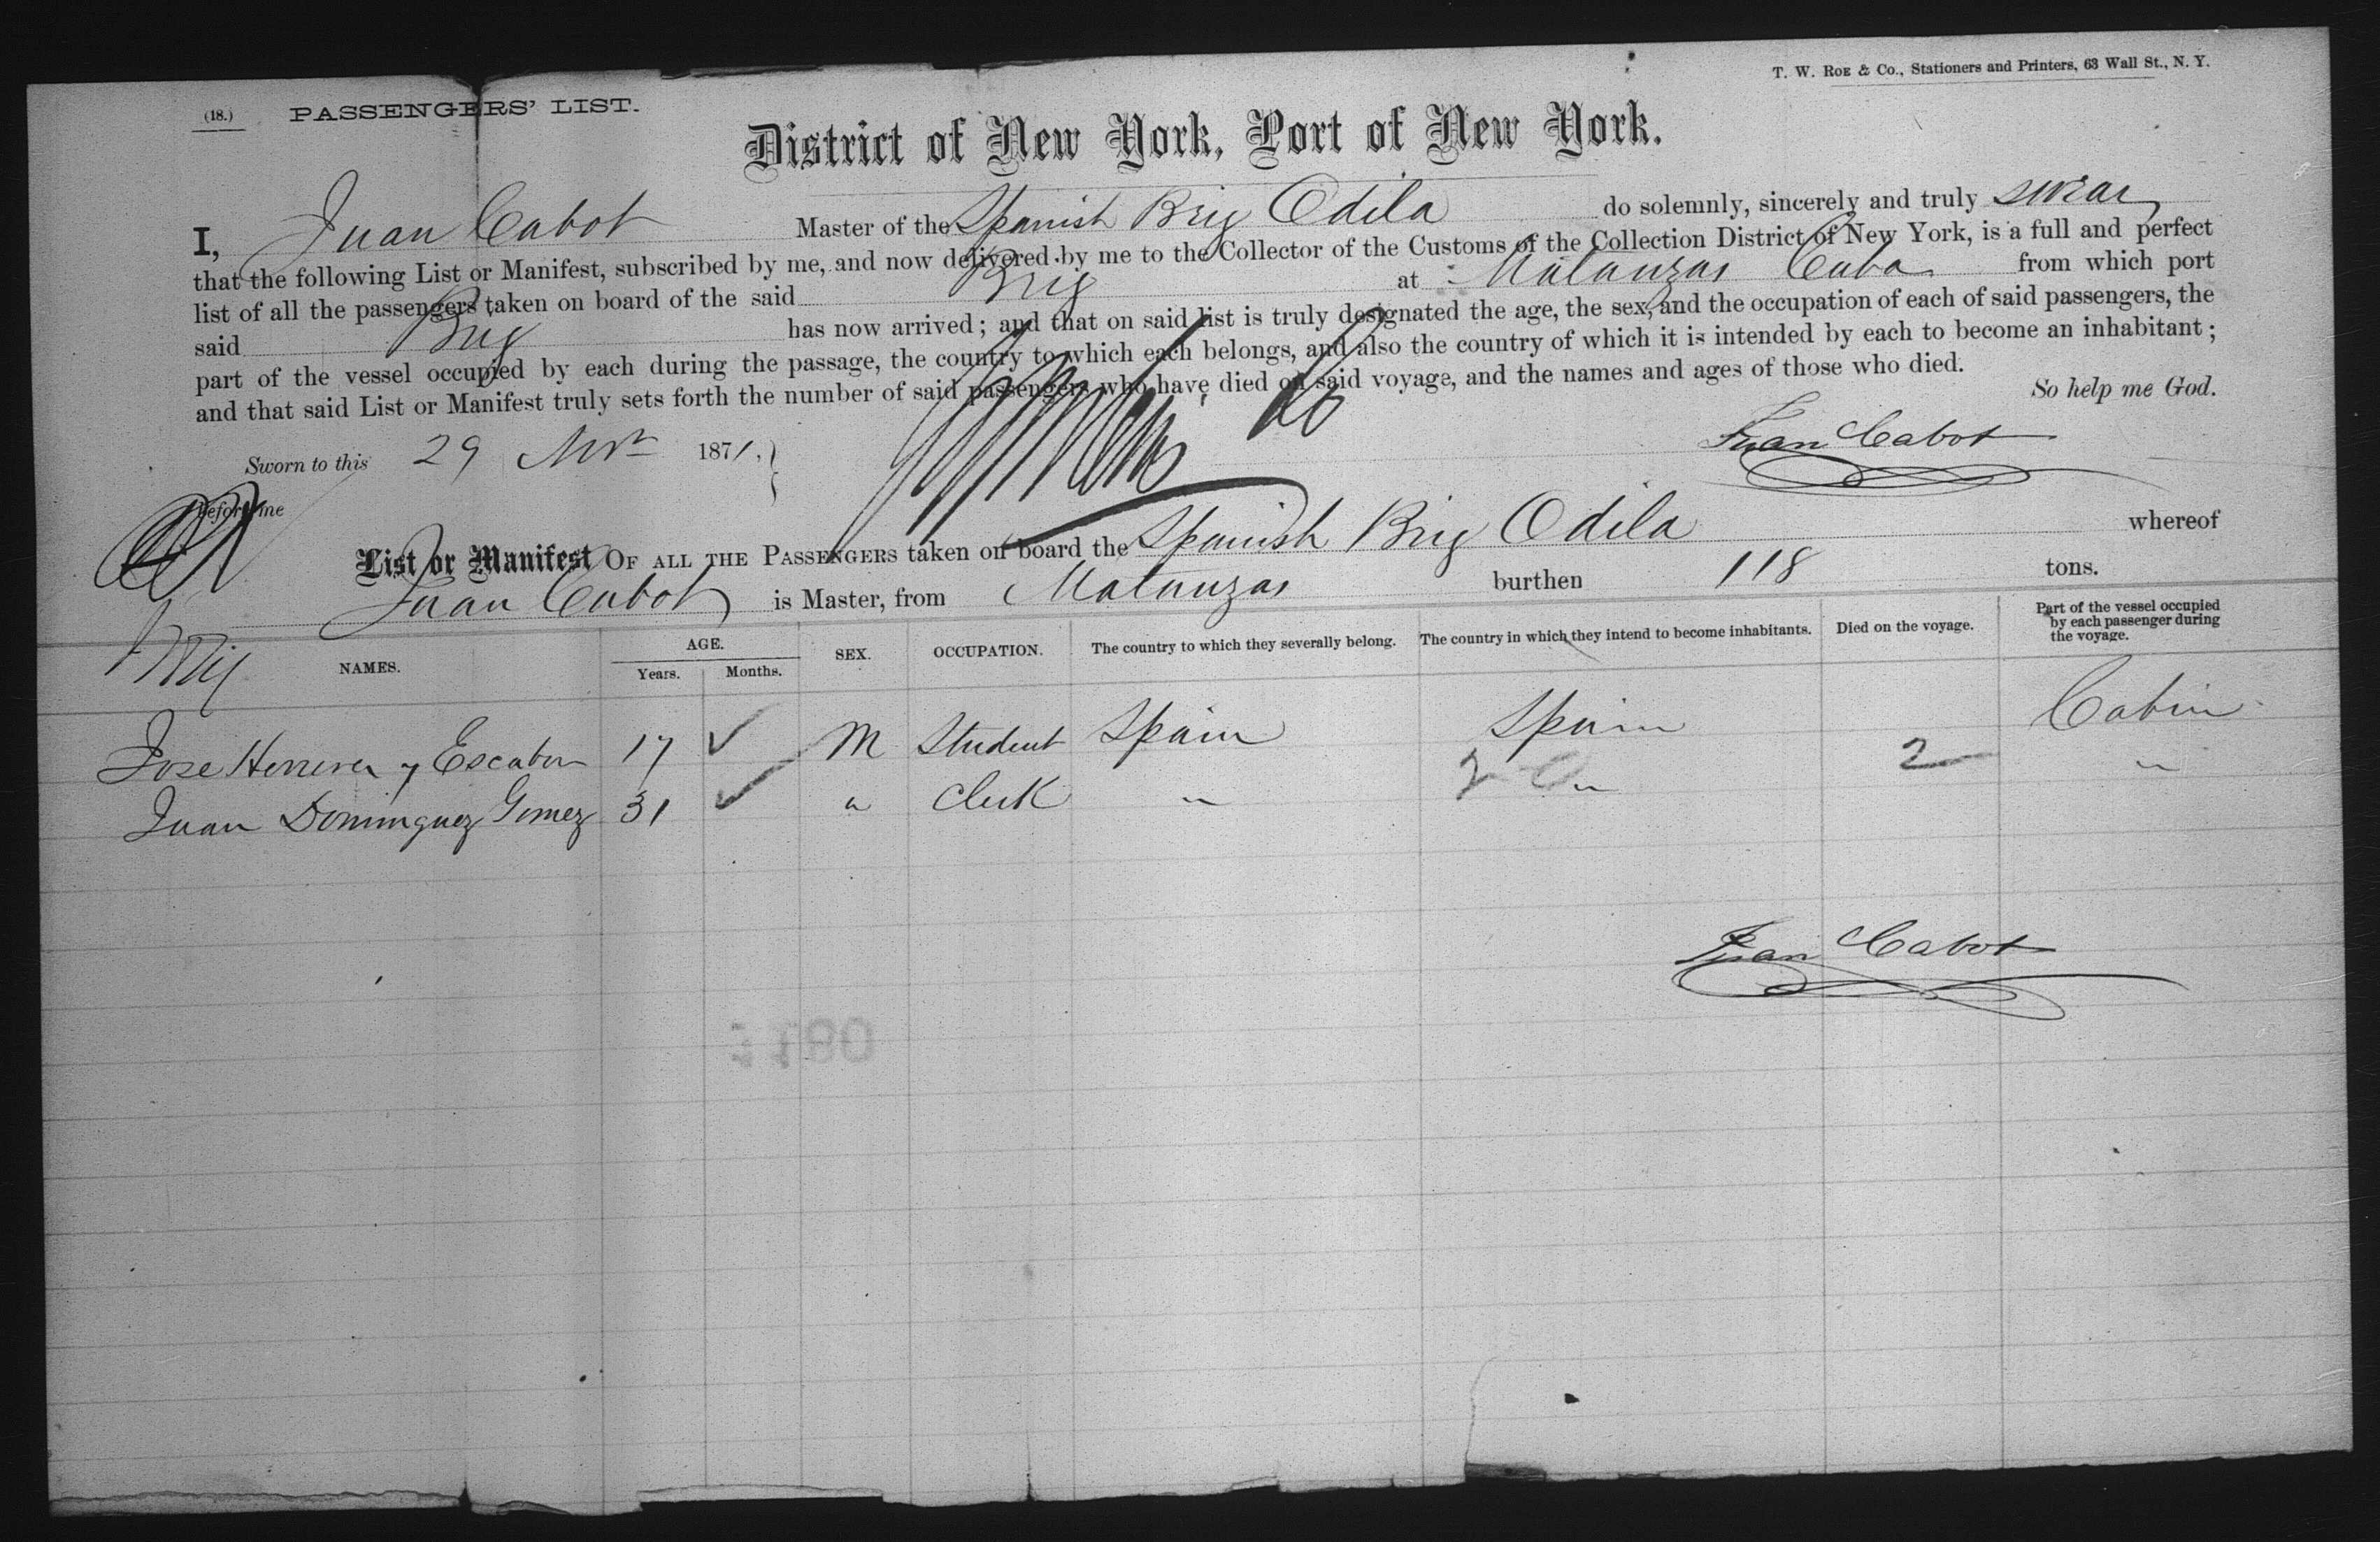 (18.) PASSENGERS' LIST.
T. W. Roe & Co., Stationers and Printers, 63 Wall St., N. Y.
District of New York, Port of New York.
I, Juan Cabot Master of the Spanish Brig Odila do solemnly, sincerely and truly swear
that the following List or Manifest, subscribed by me, and now delivered by me to the Collector of the Customs of the Collection District of New York, is a full and perfect
list of all the passengers taken on board of the said Brig at Matanzas Cuba from which port
said Brig has now arrived; and that on said list is truly designated the age, the sex, and the occupation of each of said passengers, the
part of the vessel occupied by each during the passage, the country to which each belongs, and also the country of which it is intended by each to become an inhabitant;
and that said List or Manifest truly sets forth the number of said passengers who have died on said voyage, and the names and ages of those who died.
So help me God.
Sworn to this 29 Nov 1871.
Juan Cabot
Before me
List or Manifest OF ALL THE PASSENGERS taken on board the Spanish Brig Odila whereof
Juan Cabot is Master, from Matanzas burthen 118 tons.
NAMES. AGE. Years. Months. SEX. OCCUPATION. The country to which they severally belong. The country in which they intend to become inhabitants. Died on the voyage. Part of the vessel occupied by each passenger during the voyage.
Jose Herrera y Escabor 17 M Student Spain Spain Cabin
Juan Dominguez Gomez 31 " Clerk " 2 " 2 "
Juan Cabot